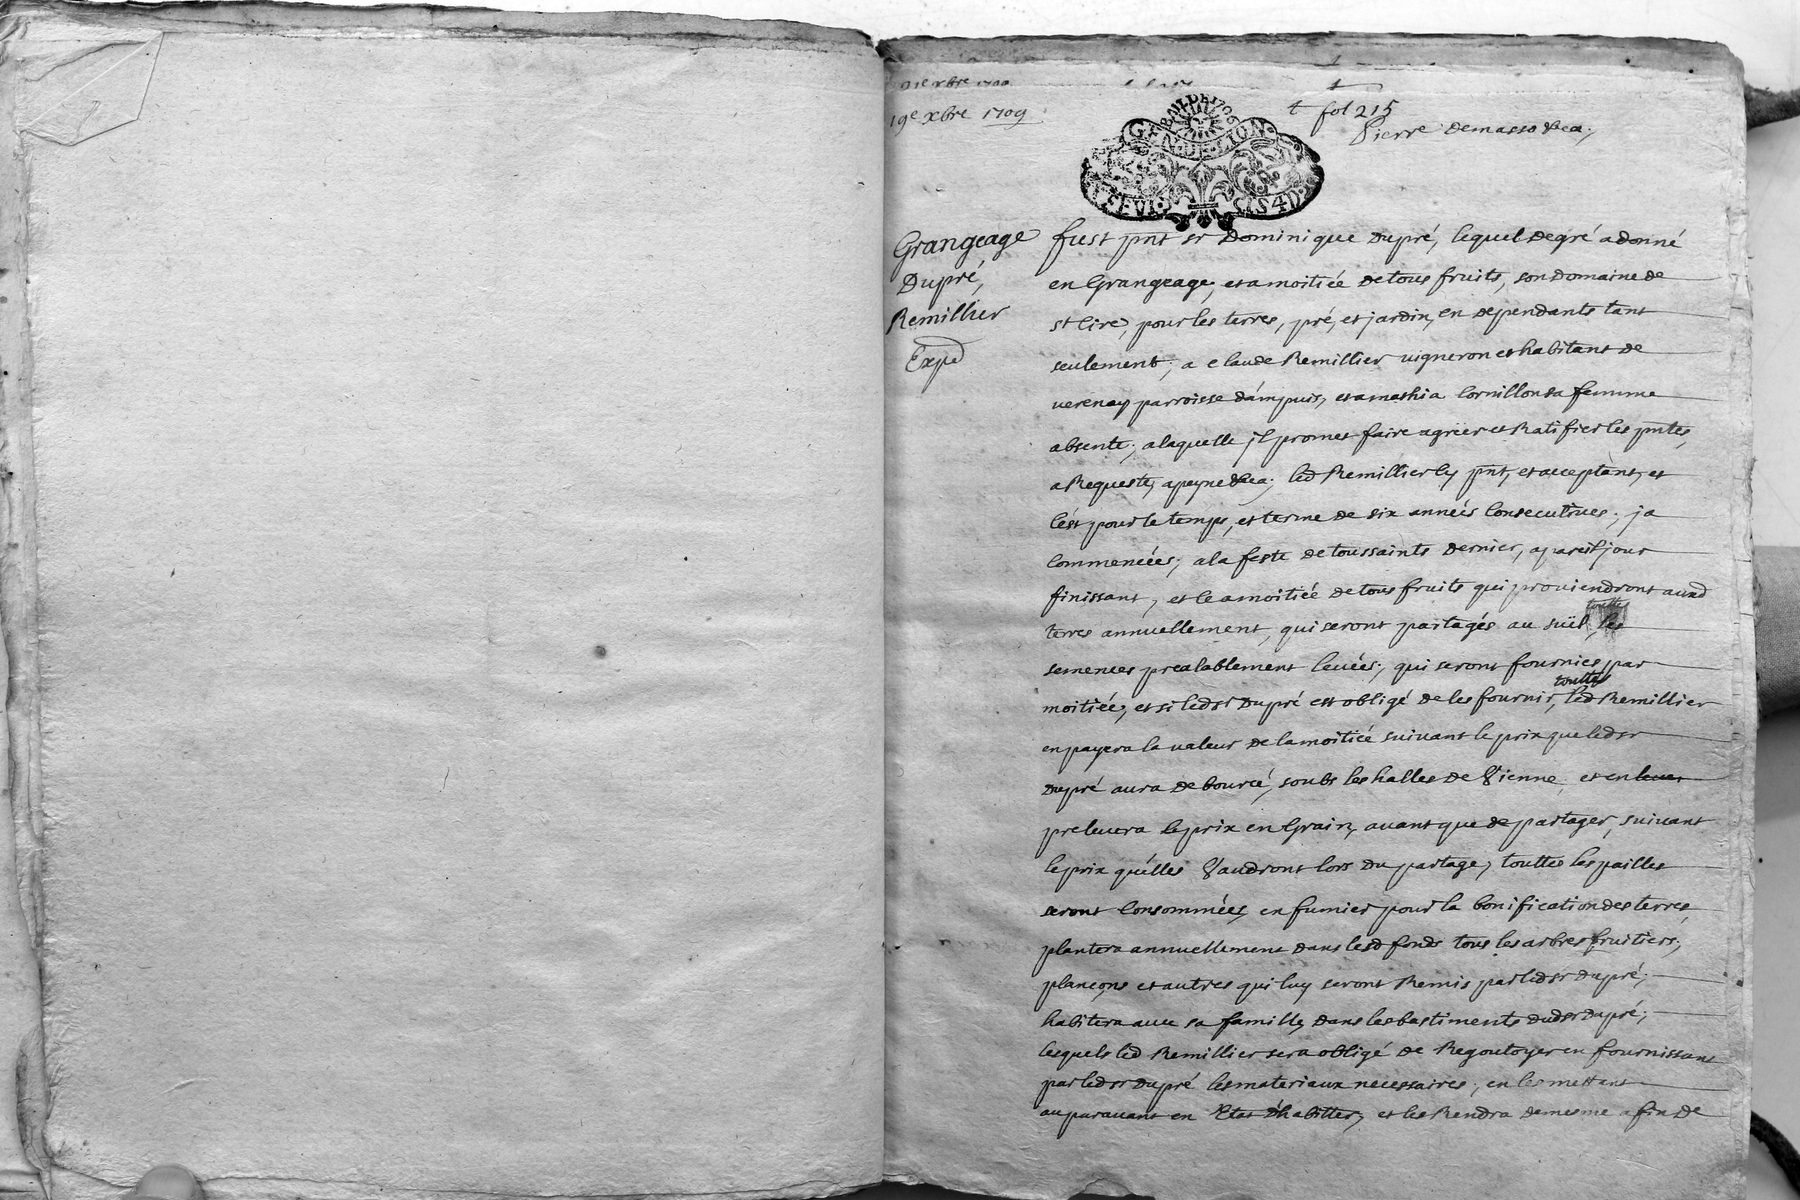 19e xbre 1709
t fol 215
Pierre demasso &ca;
G. DE LION
SI.VI. S4D
Grangeage
Dupré,
Remillier
Expd
fust pnt sr Dominique Dupré, lequel de gré a donné
en Grangeage, et a moitiée de tous fruits, son Domaine de
st Cire, pour les terres, pré, et jardin, en dependants tant
seulement; a Claude Remillier vigneron et habitant de
verenay parroisse d'ámpuis, et a mathia Cornillon sa femme
absente; a laquelle jl promet faire agréer et Ratifier les pntes,
a Requeste, a peyne &ca; led Remillier Cy pnt, et acceptant, et
C'est pour le temps, et terme de six années Consecutives; ja
Commencées; a la feste de toussaints dernier, a pareil jour
finissant, et Ce a moitiée de tous fruits qui proviendront auxd
terres annuellement, qui seront partagés au süel, les
semences prealablement levées; qui seront fournies par
moitiée, et si led sr Dupré est obligé de les fournir, touttes led Remillier
en payera la valeur de la moitiée suivant le prix que led sr
Dupré aura debourcé, soubs les halles de Vienne et en lever
prelevera le prix en Grain, avant que de partager, suivant
le prix qu'élles Vaudront lors du partage, touttes les pailles
seront Consommées en fumier pour la bonification des terres,
plantera annuellement dans lesd fonds tous les arbres fruitiers,
plançons et autres qui luy seront Remis par led sr Dupré;
habitera avec sa famille, dans les bastiments dud sr Dupré;
lesquels led Remillier sera obligé de Regoutoyer en fournissant
par led sr Dupré les materiaux necessaires; en les mettant
auparavant en Etat d'habitter, et les Rendra de mesme a fin de